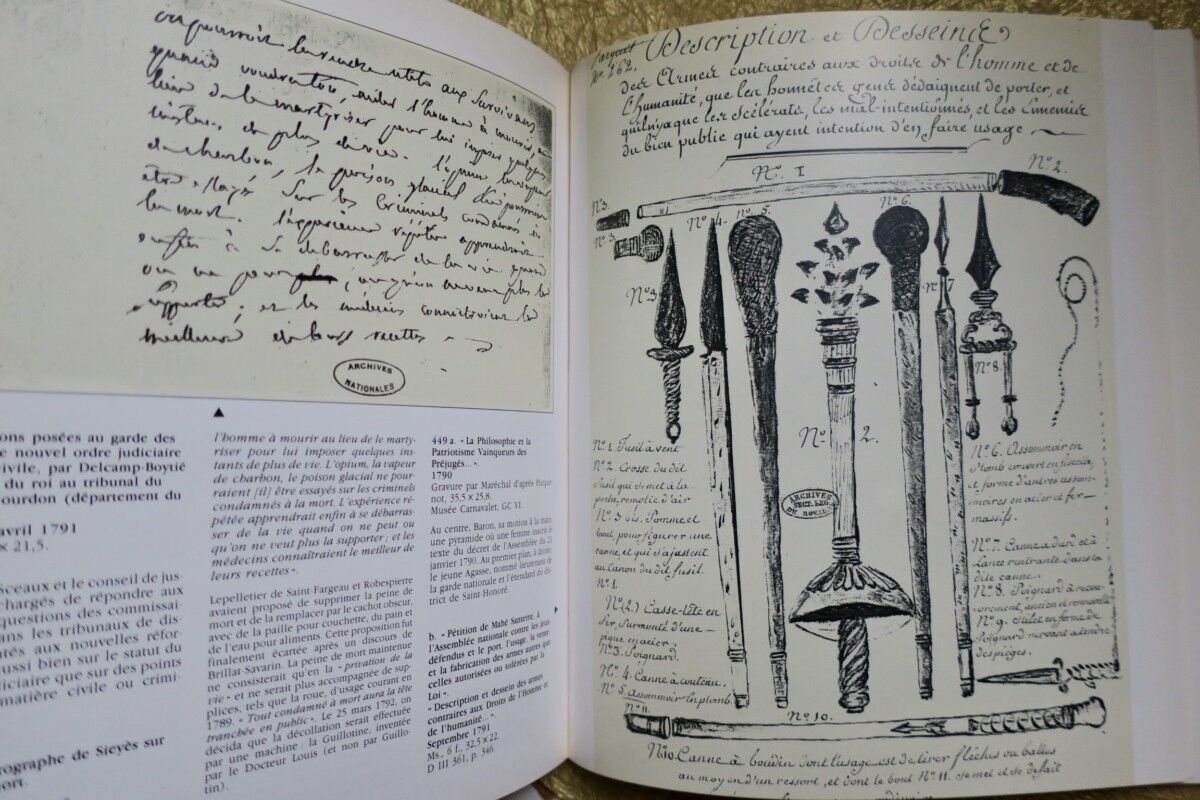 ou pourroit les rendre utils aux survivans
quand voudra-t-on, aider l'homme à mourir au
lieu de le martyriser pour lui imposer quelques
instans de plus de vie. l'opium, la vapeur
de charbon, le poison glacial ne pourroient
être essayés sur les criminels condamnés à
la mort. l'expérience répétée apprendroit
enfin à se débarrasser de la vie quand
on ne peut plus
supporter; et les médecins connoitroient le
meilleur de leurs recettes
ARCHIVES
NATIONALES
ons posées au garde des
e nouvel ordre judiciaire
ivile, par Delcamp-Boytié
du roi au tribunal du
ourdon (département du
avril 1791
× 21,5.
Sceaux et le conseil de jus-
chargés de répondre aux
questions des commissai-
ans les tribunaux de dis-
ntés aux nouvelles réfor-
ussi bien sur le statut du
diciaire que sur des points
matière civile ou crimi-
rographe de Sieyès sur
ort.
l'homme à mourir au lieu de le marty-
riser pour lui imposer quelques ins-
tants de plus de vie. L'opium, la vapeur
de charbon, le poison glacial ne pour-
raient [il] être essayés sur les criminels
condamnés à la mort. L'expérience ré-
pétée apprendrait enfin à se débarras-
ser de la vie quand on ne peut ou
qu'on ne veut plus la supporter ; et les
médecins connaîtraient le meilleur de
leurs recettes ».
Lepelletier de Saint-Fargeau et Robespierre
avaient proposé de supprimer la peine de
mort et de la remplacer par le cachot obscur,
avec de la paille pour couchette, du pain et
de l'eau pour aliments. Cette proposition fut
finalement écartée après un discours de
Brillat-Savarin. La peine de mort maintenue
ne consisterait qu'en la « privation de la
vie » et ne serait plus accompagnée de sup-
plices, tels que la roue, d'usage courant en
1789. « Tout condamné à mort aura la tête
tranchée en public ». Le 25 mars 1792, on
décida que la décollation serait effectuée
par une machine : la Guillotine, inventée
par le Docteur Louis (et non par Guillo-
tin).
449 a. « La Philosophie et la
Patriotisme Vainqueurs des
Préjugés... ».
1790
Gravure par Maréchal d'après Picque
not, 35,5 × 25,8.
Musée Carnavalet, GC VI.
Au centre, Baron, sa motion à la main,
une pyramide où une femme inscrit le
texte du décret de l'Assemblée du 21
janvier 1790. Au premier plan, à droite,
le jeune Agasse, nommé lieutenant de
la garde nationale et l'étendard du dis-
trict de Saint-Honoré.
b. « Pétition de Mahé Sancerre à
l'Assemblée nationale contre les jeux
défendus et le port, l'usage, la vente
et la fabrication des armes autres que
celles autorisées ou tolérées par la
Loi ».
« Description et dessein des armes
contraires aux Droits de l'Homme et
de l'humanité... ».
Septembre 1791
Ms., 6 f., 32,5 × 22.
D III 361, p. 346.
Nº 262. Description et Desseinde
des Armes contraires aux droits de l'homme et de
l'humanité, que les honnêtes gens dédaignent de porter, et
qu'il n'y a que les scélérats, les mal-intentionnés, et les Ennemis
du bien public qui ayent intention d'en faire usage
Nº 1
Nº 2.
Nº 3.
Nº 3.
Nº 4.
Nº 5.
Nº 6.
Nº 3
Nº 7
Nº 8.
Nº 2.
ARCHIVES
DU ROYAUME
Nº 1. Fusil à vent
Nº 2. Crosse du dit
fusil qui se met à la
poche, remplie d'air
Nº 3 bis. Pomme et
bout, pour figurer une
canne et qui s'ajustent
au Canon du dit fusil
Nº 1.
Nº (2.) Casse-tête en
fer, surmonté d'une
pique en acier.
Nº 3. Poignard.
Nº 4. Canne à couteau.
Nº 5. assommoir en plomb.
Nº 6. Assommoir en
plomb couvert en ficelle,
et forme d'autres assom-
moires en acier et fer
massifs.
Nº 7. Canne à dard et à
Lance rentrante dans la
dite canne.
Nº 8. Poignard à
ancien et
Nº 9. stilet en forme de
Poignard servant à tendre
des pièges.
Nº 11.
Nº 10.
Nº 10. Canne à boudin dont l'usage est de tirer flèches ou balles
au moyen d'un ressort, et dont le bout Nº 11. se met et se défait